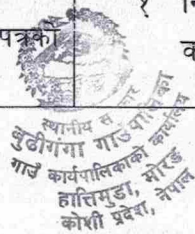 पत्रको
१
स्थानीय सरकार
बुढीगंगा गाउँपालिका
गाउँ कार्यपालिकाको कार्यालय
हात्तिमुडा, मोरङ
कोशी प्रदेश, नेपाल